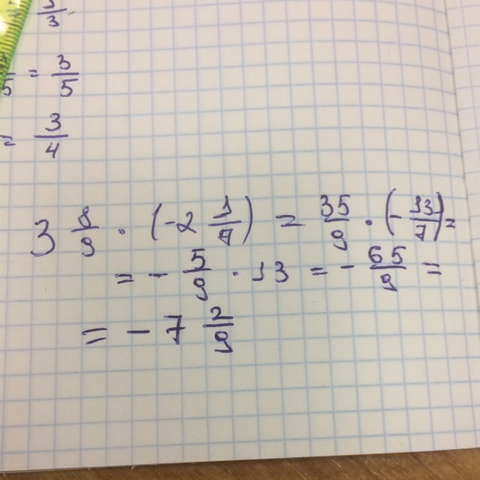 = 3/5
= 3/4
3 8/9 · (-2 1/7) = 35/9 · (-13/7) =
= - 5/9 · 13 = - 65/9 =
= - 7 2/9